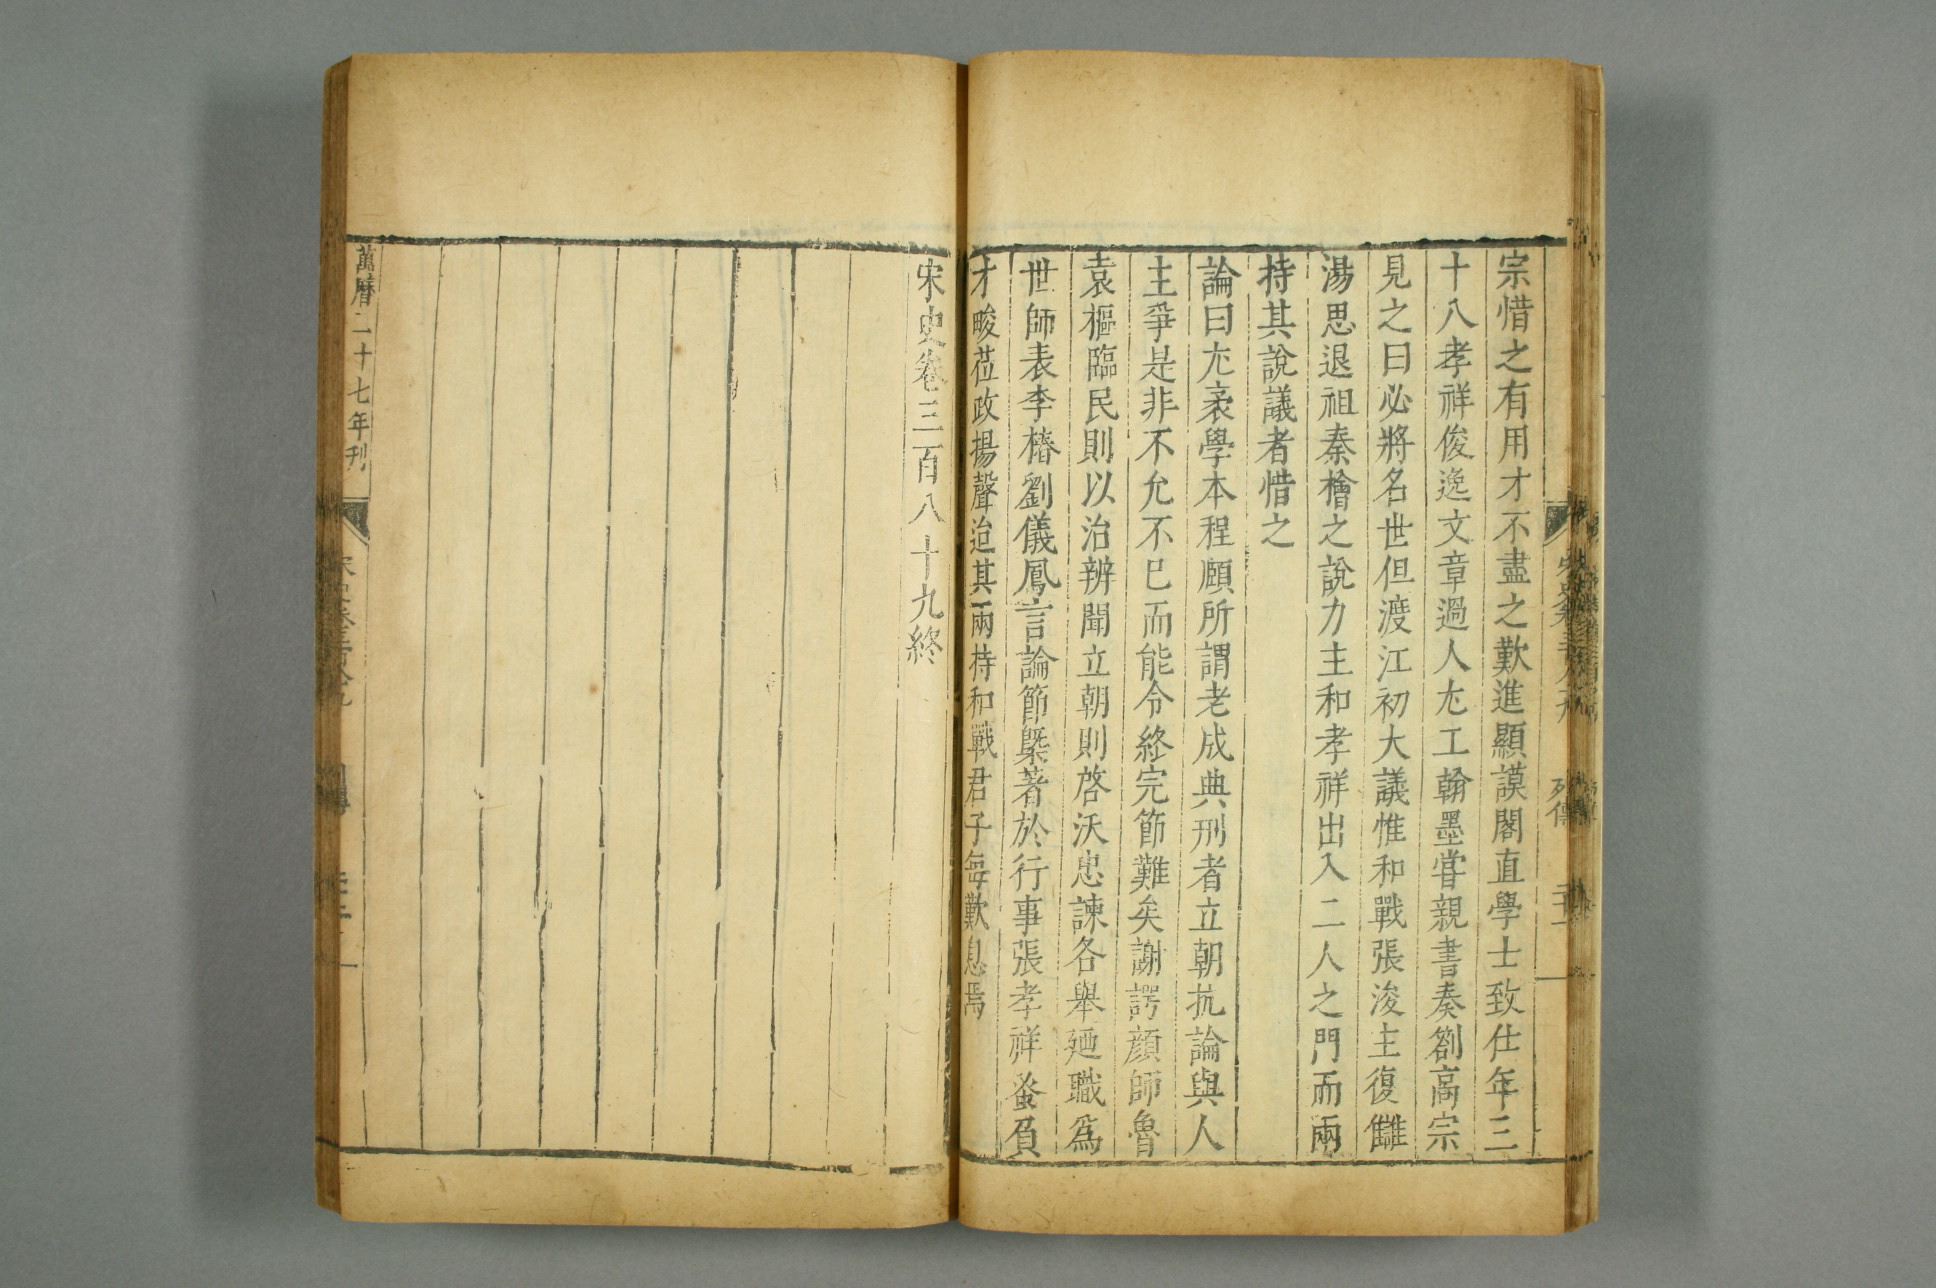 宗惜之有用才不盡之歎進顯謨閣直學士致仕年三
十八孝祥俊逸文章過人尤工翰墨甞親書奏劄高宗
見之曰必將名世但渡江初大議惟和戰張浚主復讎
湯思退祖秦檜之說力主和孝祥出入二人之門而兩
持其說議者惜之
論曰尤袤學本程頤所謂老成典刑者立朝抗論與人
主爭是非不允不已而能令終完節難矣謝諤顏師魯
袁樞臨民則以治辨聞立朝則啓沃忠諫各舉廼職爲
世師表李椿劉儀鳳言論節槩著於行事張孝祥蚤負
才畯莅政揚聲迨其兩持和戰君子每歎息焉
宋史卷三百八十九終
萬曆二十七年刊
列傳